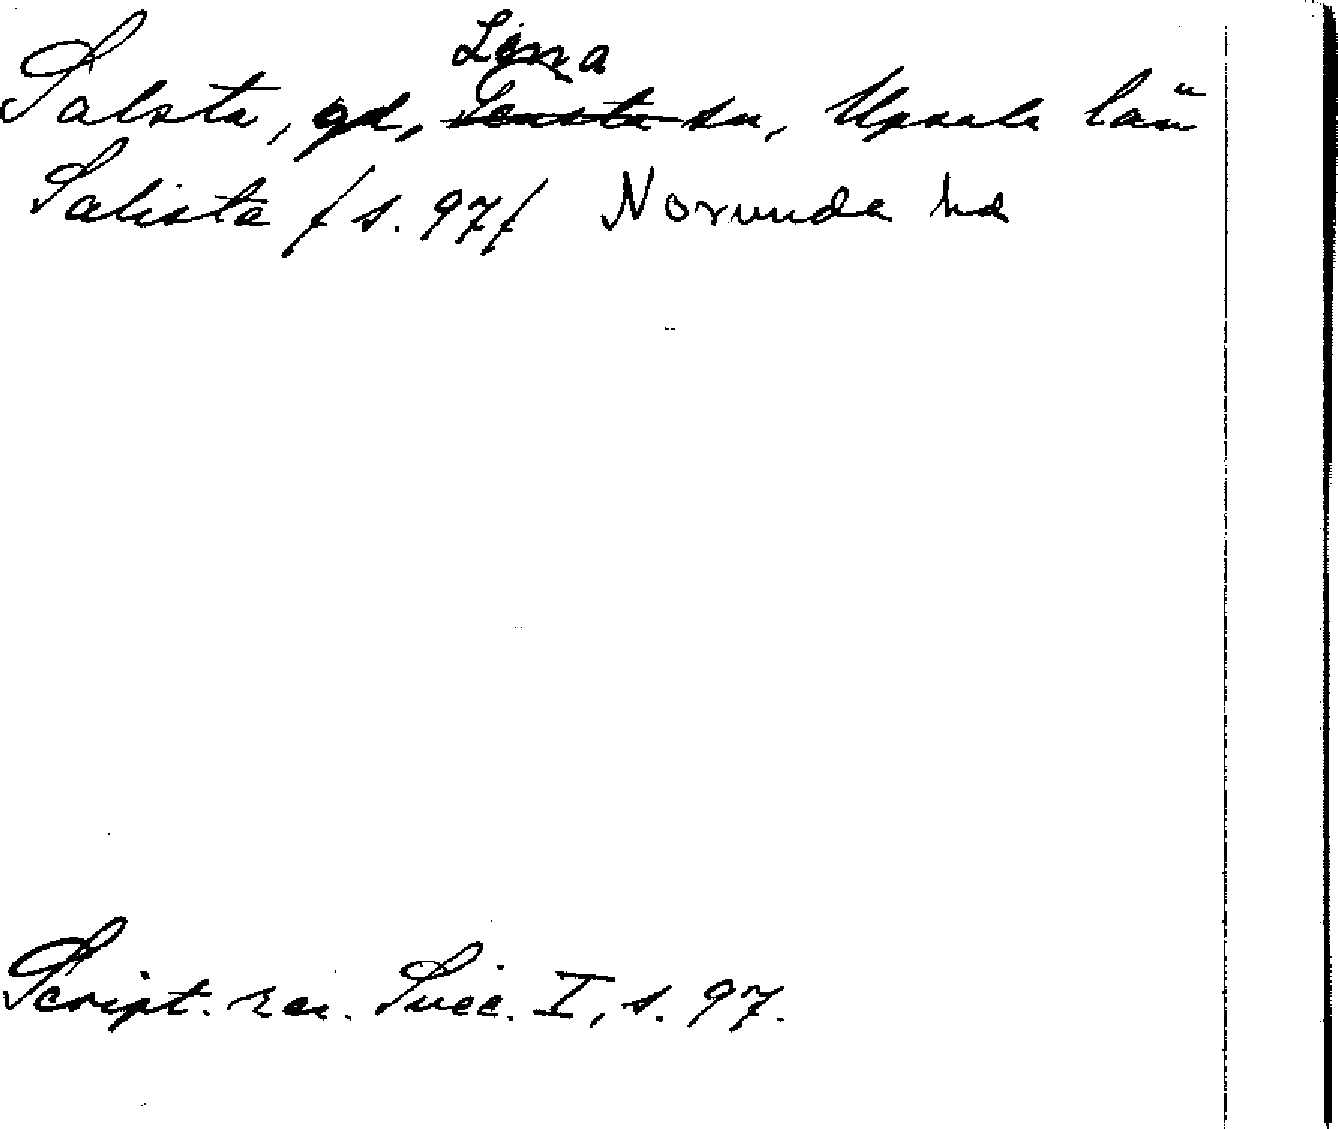 Lena
Salsta, gd, Tensta sn, Upsala län
Salista /s. 97/ Norunda hd
Script. rer. Svec. I, s. 97.